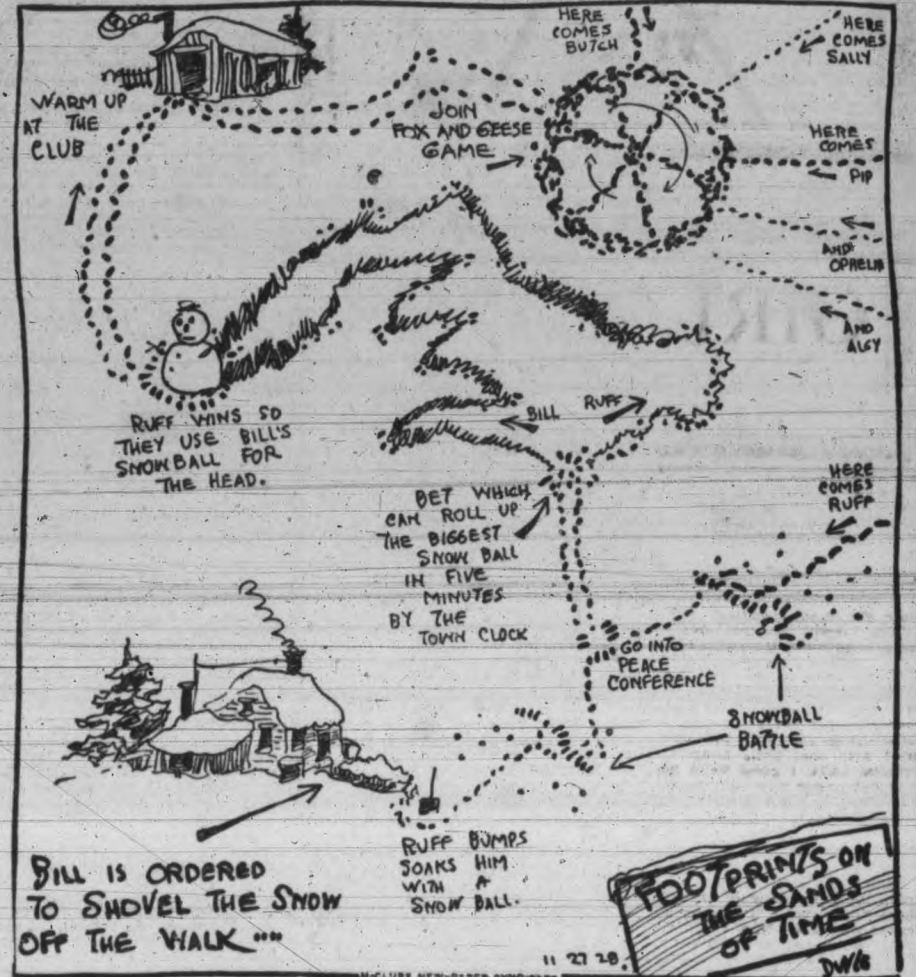 BILL IS ORDERED
TO SHOVEL THE SNOW
OFF THE WALK
RUFF BUMPS
SOAKS HIM
WITH A
SNOW BALL.
SNOWBALL
BATTLE
HERE
COMES
RUFF
GO INTO
PEACE
CONFERENCE
BET WHICH
CAN ROLL UP
THE BIGGEST
SNOW BALL
IN FIVE
MINUTES
BY THE
TOWN CLOCK
BILL
RUFF
RUFF WINS SO
THEY USE BILL'S
SNOWBALL FOR
THE HEAD.
WARM UP
AT THE
CLUB
JOIN
FOX AND GEESE
GAME
HERE
COMES
BUTCH
HERE
COMES
SALLY
HERE
COMES
PIP
AND
OPHELIA
AND
ALGY
FOOTPRINTS ON
THE SANDS
OF TIME
DWIG
11 27 28.
McCLURE NEWSPAPER SYNDICATE